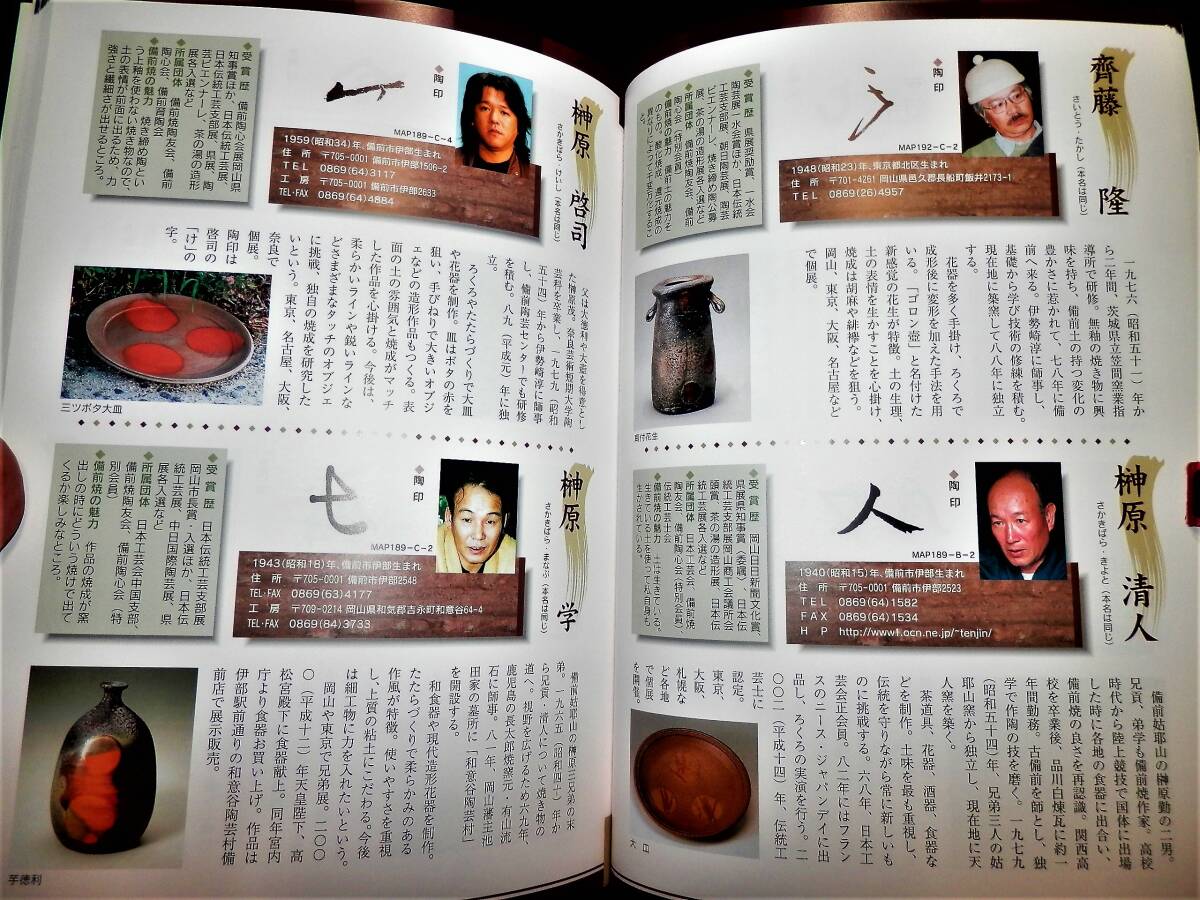 齊藤 隆
さいとう・たかし(本名は同じ)
◆陶印
MAP192-C-2
1948(昭和23)年、東京都北区生まれ
住 所 〒701-4261 岡山県邑久郡長船町飯井2173-1
TEL 0869(26)4957
◆受賞歴 県展奨励賞、一水会
陶芸展一水会賞ほか、日本伝統
工芸支部展、朝日陶芸展、陶芸
ビエンナーレ、焼き締め陶公募
展、茶の湯の造形展各入選など
◆所属団体 備前焼陶友会、備前
陶心会(特別会員)
◆備前焼の魅力 備前土の魅力そ
のもの。酸化焼成、還元焼成の
異なりによって千変万化するこ
と。
一九七六(昭和五十一)年か
ら二年間、茨城県立笠間窯業指
導所で研修。無釉の焼き物に興
味を持ち、備前土の持つ変化の
豊かさに惹かれて、七八年に備
前へ来る。伊勢崎淳に師事し、
基礎から学び技術の修練を積む。
現在地に築窯して八八年に独立
する。
花器を多く手掛け、ろくろで
成形後に変形を加えた手法を用
いる。「ゴロン壺」と名付けた
新感覚の花生が特徴。土の生理、
土の表情を生かすことを心掛け、
焼成は胡麻や緋襷などを狙う。
岡山、東京、大阪、名古屋など
で個展。
耳付花生
榊原 清人
さかきばら・きよと(本名は同じ)
◆陶印
人
MAP189-B-2
1940(昭和15)年、備前市伊部生まれ
住 所 〒705-0001 備前市伊部2523
TEL 0869(64)1582
FAX 0869(64)1534
HP http://www1.ocn.ne.jp/~tenjin/
◆受賞歴 岡山日日新聞文化賞、
県展県知事賞(委嘱)、日本伝
統工芸支部展岡山商工会議所会
頭賞、茶の湯の造形展、日本伝
統工芸展各入選など
◆所属団体 日本工芸会、備前焼
陶友会、備前陶心会(特別会員)、
伝統工芸士会
◆備前焼の魅力 土は生きている。
生きている土を使って私自身も
生かされている。
備前姑耶山の榊原勤の二男。
兄貢、弟学も備前焼作家。高校
時代から陸上競技で国体に出場
した時に各地の食器に出合い、
備前焼の良さを再認識。関西高
校を卒業後、品川白煉瓦に約一
年間勤務。古備前を師とし、独
学で作陶の技を磨く。一九七九
(昭和五十四)年、兄弟三人の姑
耶山窯から独立し、現在地に天
人窯を築く。
茶道具、花器、酒器、食器な
どを制作。土味を最も重視し、
伝統を守りながら常に新しいも
のに挑戦する。六八年、日本工
芸会正会員。八二年にはフラン
スのニース・ジャパンデイに出
品し、ろくろの実演を行う。二
〇〇二(平成十四)年、伝統工
芸士に
認定。
東京、
大阪、
札幌な
ど各地
で個展
を開催。
大皿
榊原 啓司
さかきばら・けいし(本名は同じ)
◆陶印
MAP189-C-4
1959(昭和34)年、備前市伊部生まれ
住 所 〒705-0001 備前市伊部1506-2
TEL 0869(64)3117
工 房 〒705-0001 備前市伊部2633
TEL・FAX 0869(64)4884
◆受賞歴 備前陶心会展岡山県
知事賞ほか、日本伝統工芸展、
日本伝統工芸支部展、県展、陶
芸ビエンナーレ、茶の湯の造形
展各入選など
◆所属団体 備前焼陶友会、備前
陶心会、備前育陶会
◆備前焼の魅力 焼き締め陶とい
う上釉を使わない焼き物なので、
土の表情が前面に出るため、力
強さと繊細さが出せるところ。
父は大徳利や大壺を得意とし
た榊原茂。奈良芸術短期大学陶
芸科を卒業し、一九七九(昭和
五十四)年から伊勢崎淳に師事
し、備前陶芸センターでも研修
を積む。八九(平成元)年に独
立。
ろくろやたたらづくりで大皿
や花器を制作。皿はボタの赤を
狙い、手びねりで大きいオブジ
ェなどの造形作品もつくる。表
面の土の雰囲気と焼成がマッチ
した作品を心掛ける。今後は、
柔らかいラインや鋭いラインな
どさまざまなタッチのオブジェ
に挑戦、独自の焼成を研究した
いという。東京、名古屋、大阪、
奈良で
個展。
陶印は
啓司の
「け」の
字。
三ツボタ大皿
榊原 学
さかきばら・まなぶ(本名は同じ)
◆陶印
MAP189-C-2
1943(昭和18)年、備前市伊部生まれ
住 所 〒705-0001 備前市伊部2548
TEL・FAX 0869(63)4177
工 房 〒709-0214 岡山県和気郡吉永町和意谷64-4
TEL・FAX 0869(84)3733
◆受賞歴 日本伝統工芸支部展
岡山市長賞、入選ほか、日本伝
統工芸展、中日国際陶芸展、県
展各入選など
◆所属団体 日本工芸会中国支部、
備前焼陶友会、備前陶心会(特
別会員)
◆備前焼の魅力 作品の焼成が窯
出しの時にどういう焼けで出て
くるか楽しみなところ。
備前姑耶山の榊原三兄弟の末
弟。一九六五(昭和四十)年か
ら兄貢・清人について焼き物の
道へ。視野を広げるため六九年、
鹿児島の長太郎焼窯元・有山流
石に師事。八一年、岡山藩主池
田家の墓所に「和意谷陶芸村」
を開設する。
和食器や現代造形花器を制作。
たたらづくりで柔らかみのある
作風が特徴。使いやすさを重視
し、上質の粘土にこだわる。今後
は細工物にも力を入れたいという。
岡山や東京で兄弟展。二〇〇
〇(平成十二)年天皇陛下、高
松宮殿下に食器献上。同年宮内
庁より食器お買い上げ。作品は
伊部駅前通りの和意谷陶芸村備
前店で展示販売。
芋徳利